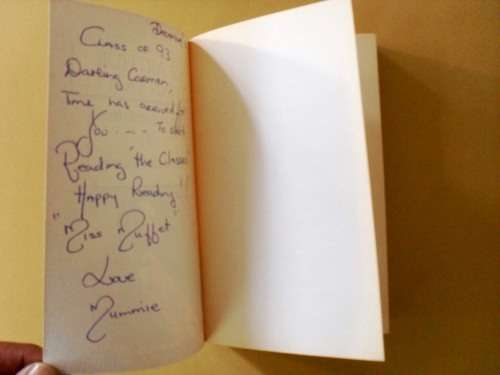 Class of 93
Darling Carmen,
Time has arrived for
You . - - To start
Reading "the Classes
Happy Reading !!
"Miss Muffet"
Love
Mummie